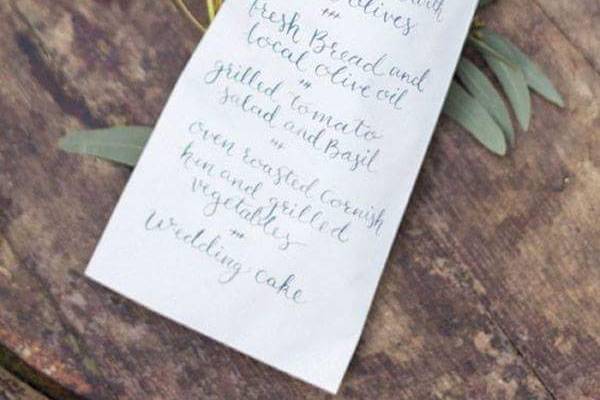 with
olives
***
Fresh Bread and
local olive oil
***
grilled tomato
salad and Basil
***
oven roasted Cornish
hen and grilled
vegetables
***
Wedding cake